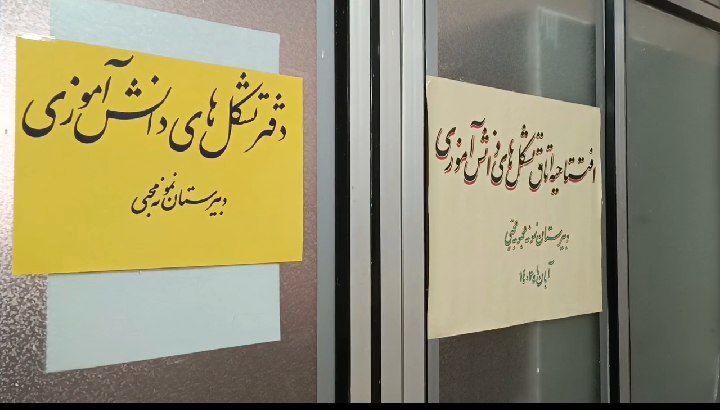 دفتر تشکل های دانش آموزی
دبیرستان نمونه محبی
افتتاحیه اتاق تشکل های دانش آموزی
دبیرستان نمونه محبوبه محبی
آبان ماه